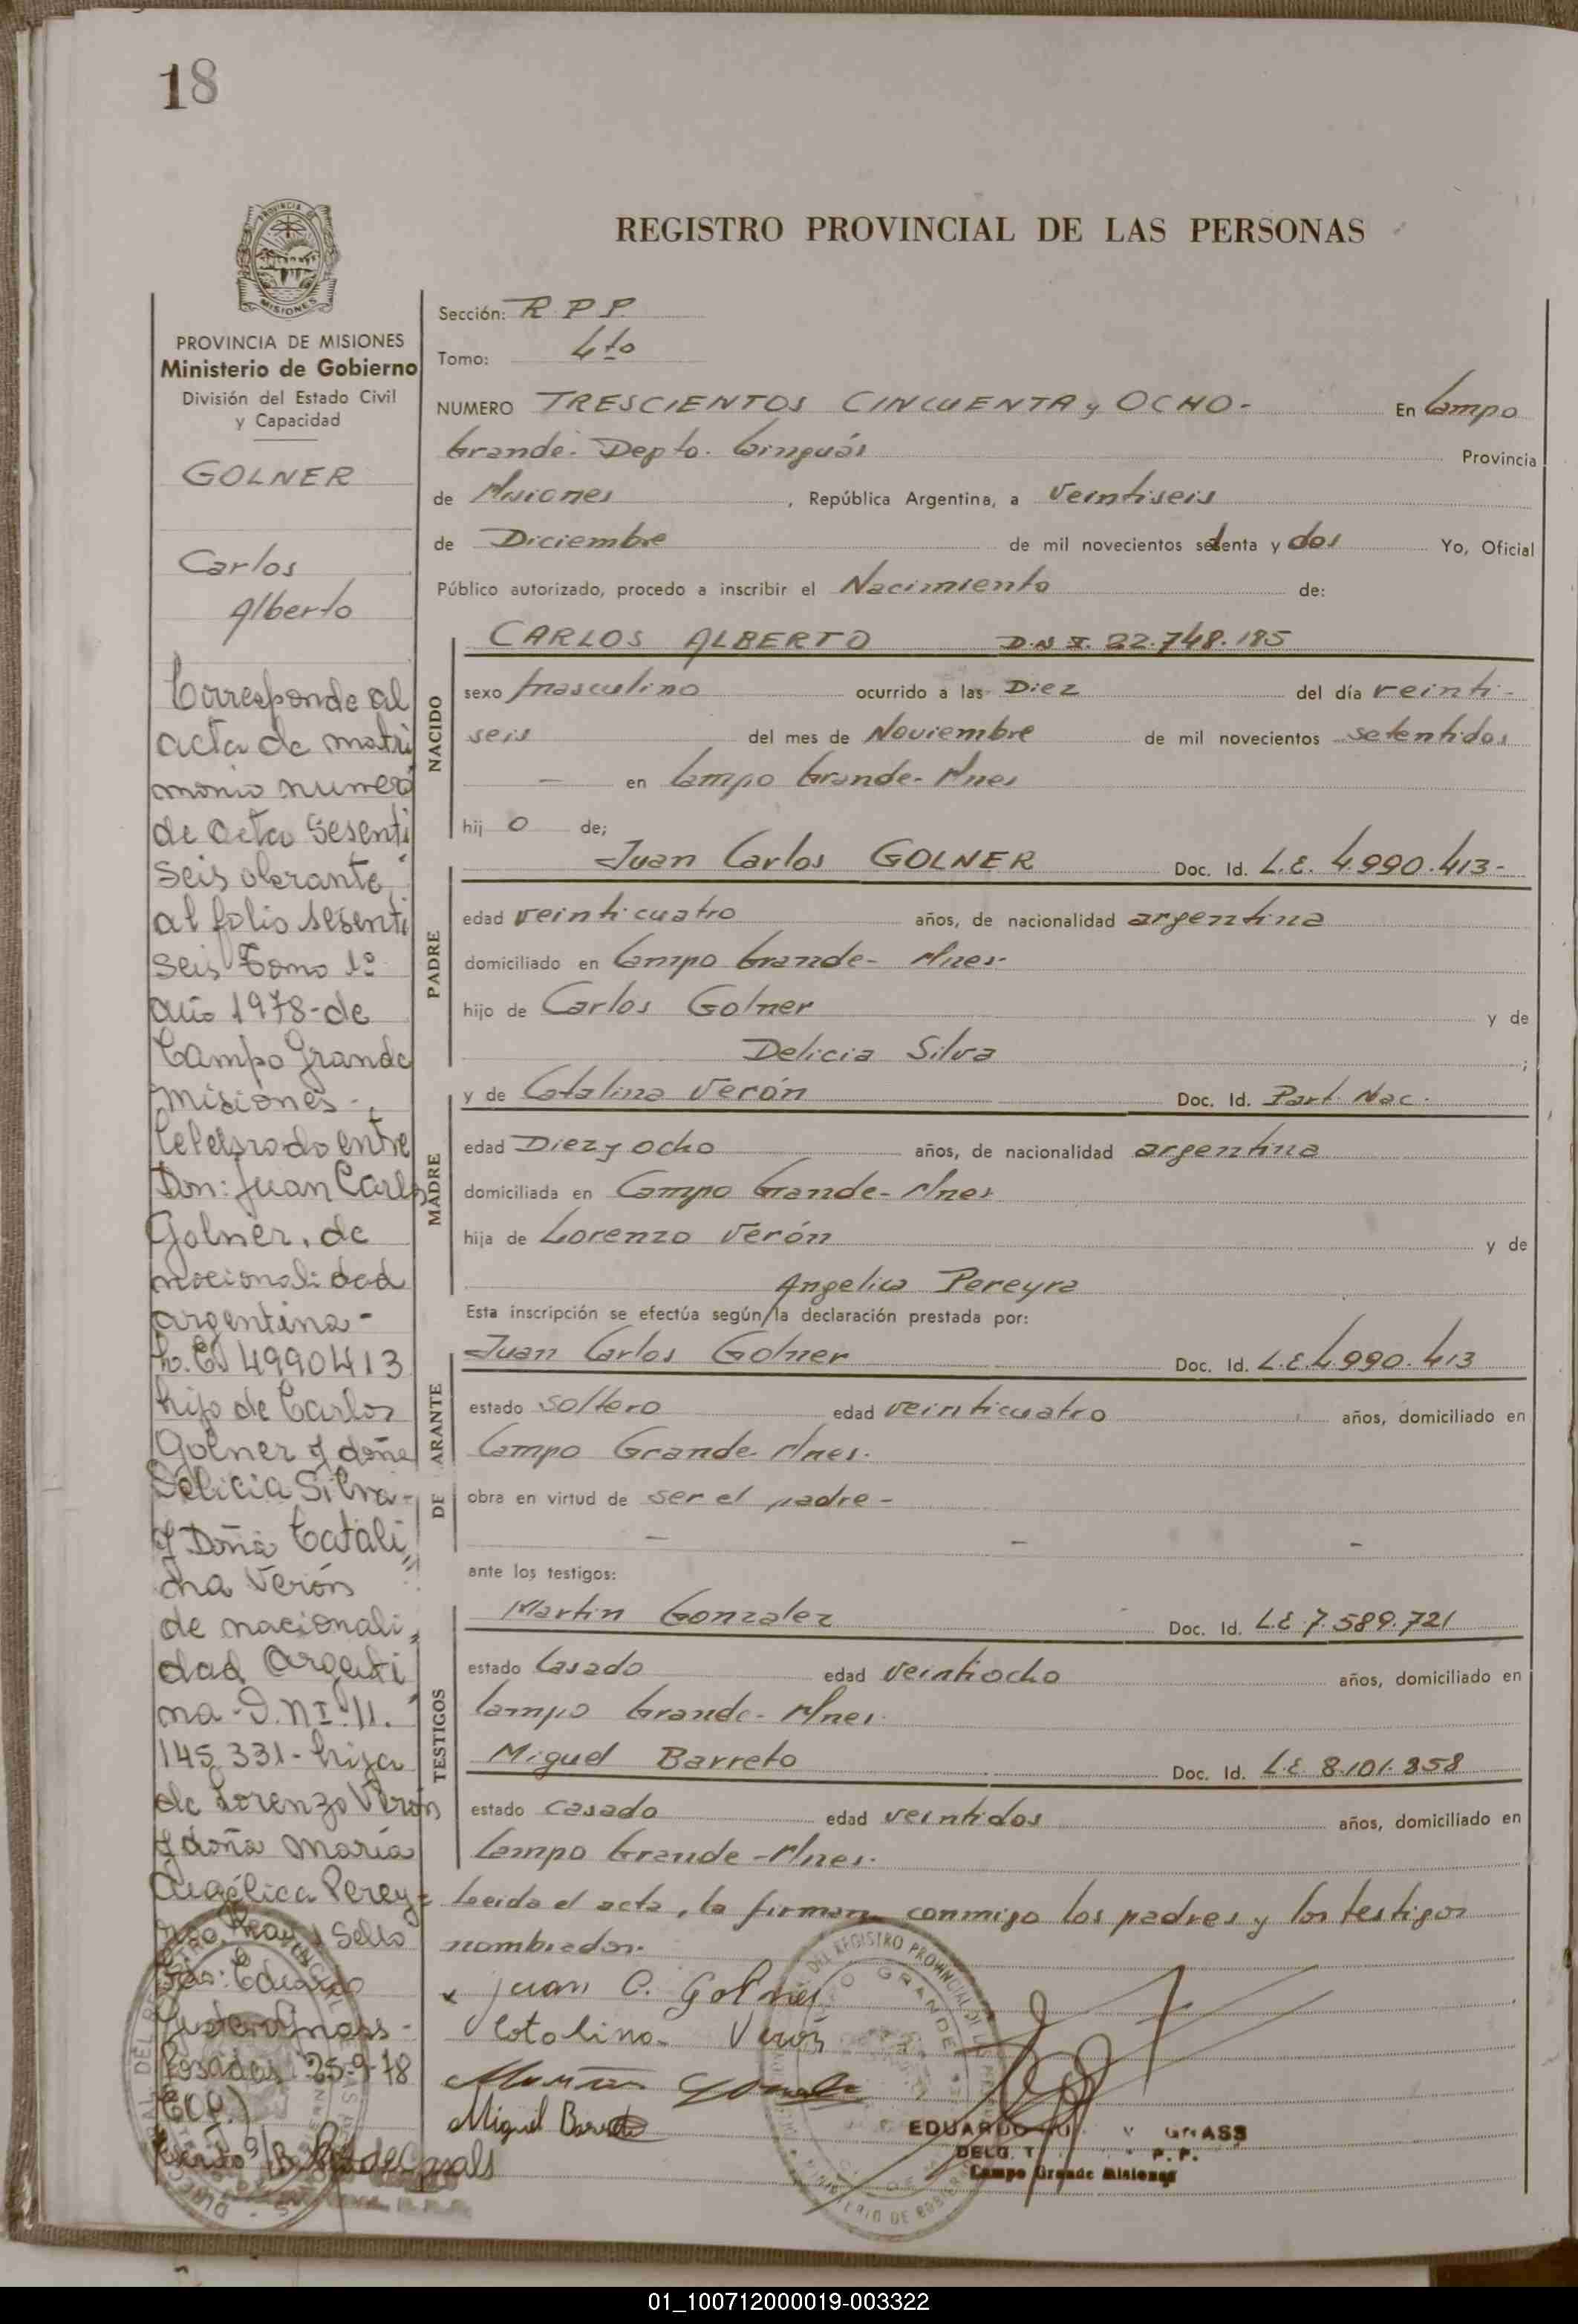 18
REGISTRO PROVINCIAL DE LAS PERSONAS
MISIONES
PROVINCIA DE MISIONES
Ministerio de Gobierno
División del Estado Civil
y Capacidad
GOLNER
Carlos
Alberto
Corresponde al
acta de matri
monio numero
de acta sesenti
seis obrante
al folio sesenti
seis Tomo 1º
año 1978-de
Campo Grande
Misiones-
Celebrado entre
Don: Juan Carlos
Golner, de
nacionalidad
argentina-
L.E. 4990413
hijo de Carlos
Golner y doña
Delicia Silva-
y Doña Catali
na Verón
de nacionali
dad Argenti
na-D.N.I. 11.
145.331- hija
de Lorenzo Verón
y doña María
Angélica Perey=
Sello
Fdo: Eduardo
Posadas 25-9-78
Sección: R P P.
Tomo: 4to
NUMERO TRESCIENTOS CINCUENTA y OCHO- En Campo
Grande- Depto. Cainguás Provincia
de Misiones , República Argentina, a veintiseis
de Diciembre de mil novecientos setenta y dos Yo, Oficial
Público autorizado, procedo a inscribir el Nacimiento de:
CARLOS ALBERTO D.N.I. 22.748.185
NACIDO
sexo masculino ocurrido a las Diez del día veinti-
seis del mes de Noviembre de mil novecientos setentidos
— en Campo Grande- Mnes
hij o de;
Juan Carlos GOLNER Doc. Id. L.E. 4.990.413-
PADRE
edad veinticuatro años, de nacionalidad argentina
domiciliado en Campo Grande- Mnes-
hijo de Carlos Golner y de
Delicia Silva ;
y de Catalina Verón Doc. Id. Part. Nac.
MADRE
edad Diez y ocho años, de nacionalidad argentina
domiciliada en Campo Grande- Mnes
hija de Lorenzo Verón y de
Angelica Pereyra
Esta inscripción se efectúa según la declaración prestada por:
Juan Carlos Golner Doc. Id. L.E. 4.990.413
DE ARANTE
estado soltero edad veinticuatro años, domiciliado en
Campo Grande- Mnes.
obra en virtud de ser el padre-
— — —
ante los testigos:
Martin Gonzalez Doc. Id. L.E 7.589.721
TESTIGOS
estado Casado edad veintiocho años, domiciliado en
Campo Grande- Mnes.
Miguel Barreto Doc. Id. L.E. 8.101.358
estado casado edad veintidos años, domiciliado en
Campo Grande -Mnes.
Leida el acta, la firman conmigo los padres y los testigos
nombrados.
x juan C. Golner
Catalina Verón
Miguel Barreto
EDUARDO GRASS
P.P.
Campo Grande Misiones
01_100712000019-003322